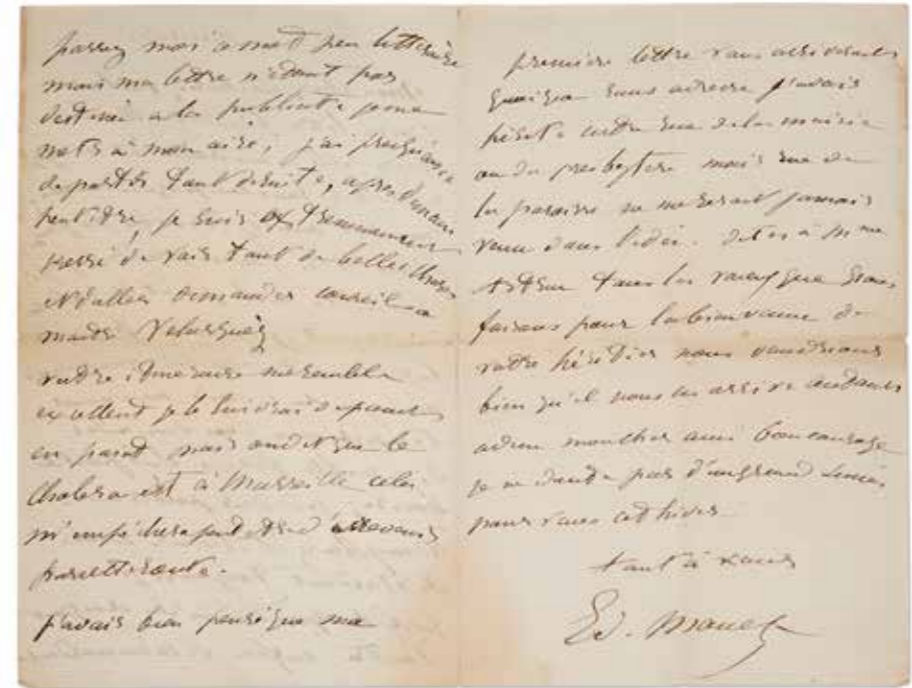 passez moi ce mot peu littéraire
mais ma lettre n'étant pas
destinée a la publicité je me
mets à mon aise, j'ai presqu'envie
de partir tout de suite, apres demain
peut être, je suis extremement
pressé de voir tant de belles choses
et d'aller demander conseil a
maitre Velasquez
votre itineraire me semble
excellent je le suivrai de point
en point mais on dit que le
Cholera est à Marseille cela
m'empêchera peut etre de revenir
par cette route.
j'avais bien pensé que ma
premiere lettre vous arriverait
quoique sans adresse j'avais
hésité entre rue de la mairie
ou du presbytere mais rue de
la paroisse ne me serait jamais
venu dans l'idée. dites à Mme
Astruc tous les voeux que nous
faisons pour la bienvenue de
votre héritier nous voudrions
bien qu'il nous en arrive autant
adieu mon cher ami bon courage
je ne doute pas d'un grand succès
pour vous cet hiver
tout à vous
Ed. Manet